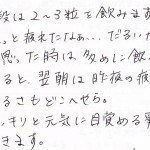 段は2~3粒を飲みます
、と疲れたなぁ...だるいな
思った時は多めに飲ん
ると、翌朝は昨夜の疲
るさもどこへやら。
っきりと元気に目覚める事
きます。